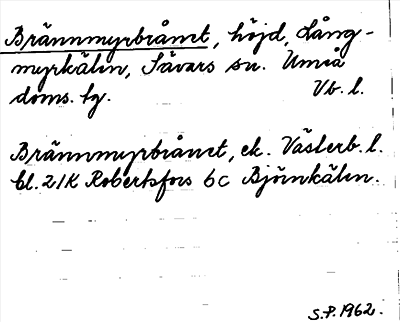 Brännmyrbrånet, höjd, Lång-
myrkälen, Sävars sn. Umeå
doms. tg. Vb. l.
Brännmyrbrånet, ek. Västerb. l.
bl. 21K Robertsfors 6c Björnkälen.
S.P. 1962.